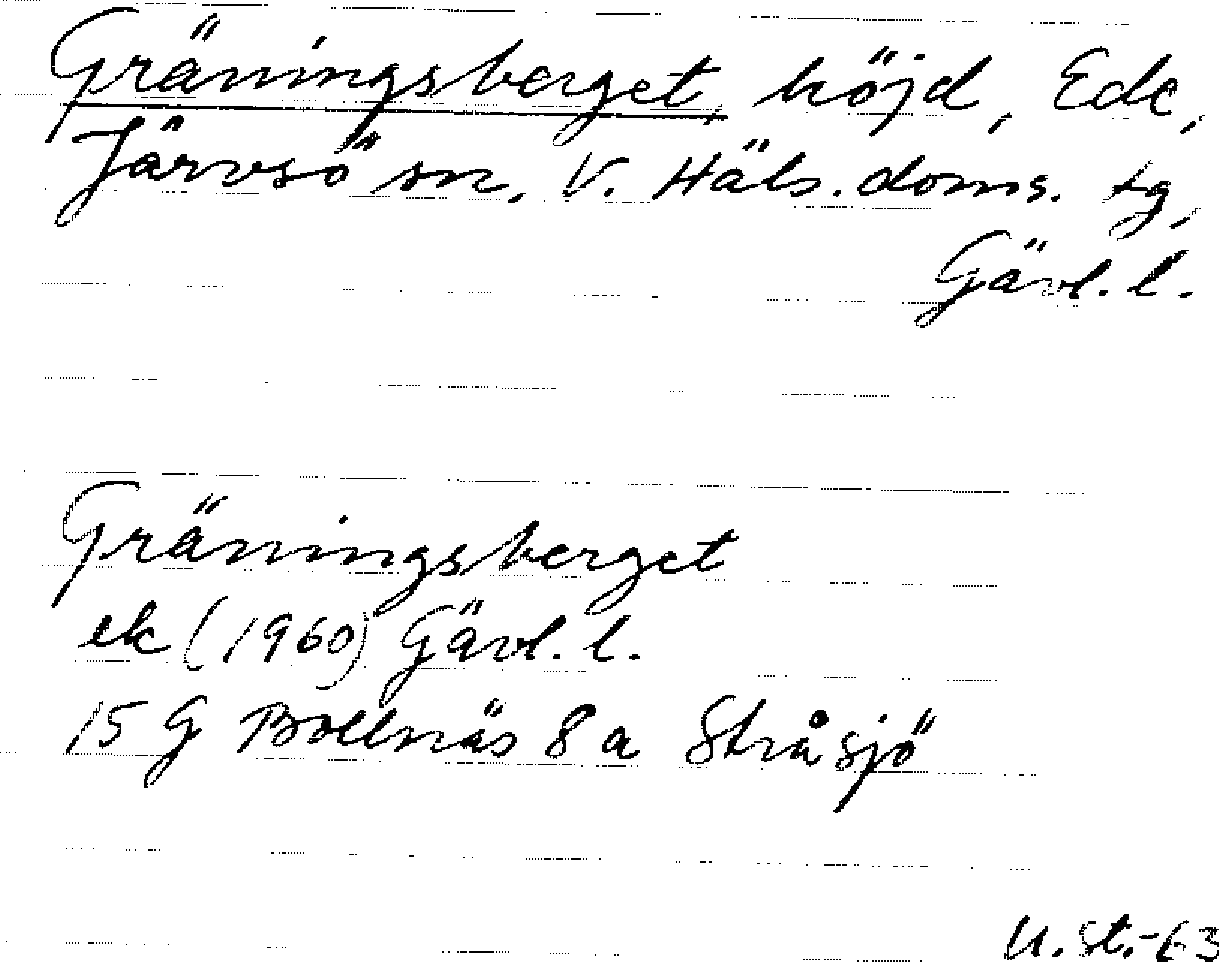 Gräningsberget, höjd, Ede,
Järvsö sn, V. Häls. doms. tg,
Gävl. l.
Gräningsberget
ek (1960) Gävl. l.
15 G Bollnäs 8 a Stråsjö
U. St.-63